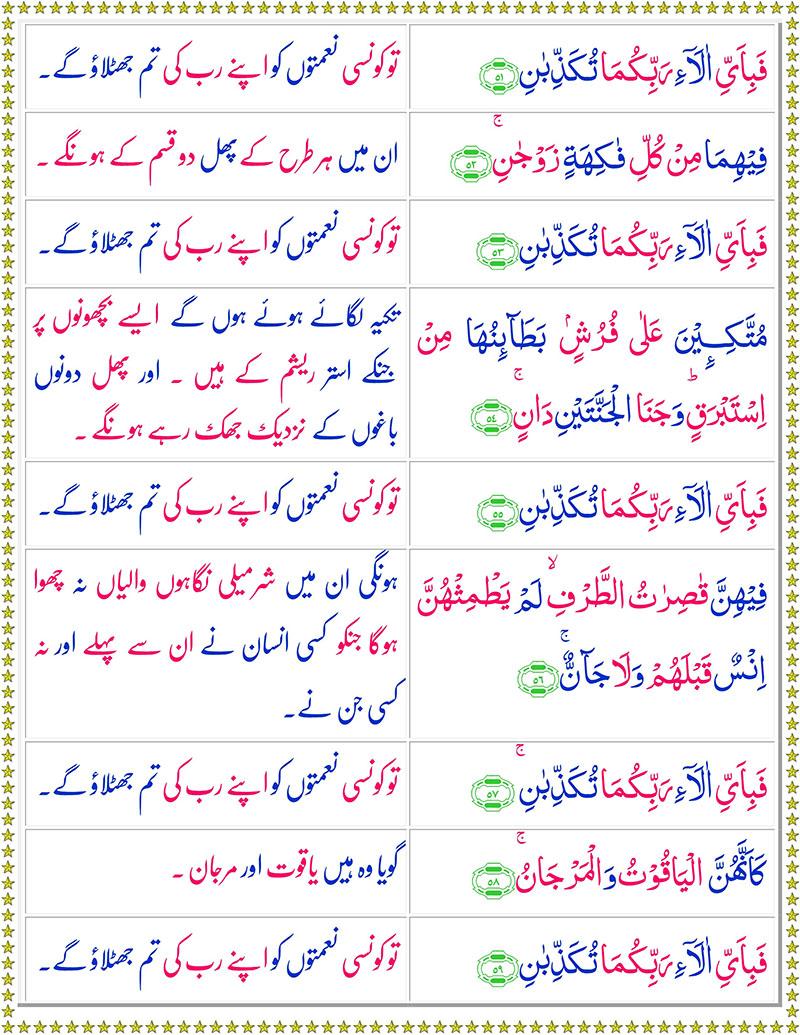 فَبِاَيِّ اٰلَآءِ رَبِّكُمَا تُكَذِّبٰنِ ﴿۵۱﴾
تو کونسی نعمتوں کو اپنے رب کی تم جھٹلاؤ گے۔
فِيْهِمَا مِنْ كُلِّ فٰكِهَةٍ زَوْجٰنِ ۚ ﴿۵۲﴾
ان میں ہر طرح کے پھل دو قسم کے ہونگے ۔
فَبِاَيِّ اٰلَآءِ رَبِّكُمَا تُكَذِّبٰنِ ﴿۵۳﴾
تو کونسی نعمتوں کو اپنے رب کی تم جھٹلاؤ گے۔
مُتَّكِـِٕيْنَ عَلٰى فُرُشٍۭ بَطَآىِٕنُهَا مِنْ
اِسْتَبْرَقٍ ؕ وَجَنَا الْجَنَّتَيْنِ دَانٍ ۚ ﴿۵۴﴾
تکیہ لگائے ہوئے ہوں گے ایسے بچھونوں پر
جنکے استر ریشم کے ہیں ۔ اور پھل دونوں
باغوں کے نزدیک جھک رہے ہونگے ۔
فَبِاَيِّ اٰلَآءِ رَبِّكُمَا تُكَذِّبٰنِ ﴿۵۵﴾
تو کونسی نعمتوں کو اپنے رب کی تم جھٹلاؤ گے۔
فِيْهِنَّ قٰصِرٰتُ الطَّرْفِ ۙ لَمْ يَطْمِثْهُنَّ
اِنْسٌ قَبْلَهُمْ وَلَا جَآنٌّ ۚ ﴿۵۶﴾
ہونگی ان میں شرمیلی نگاہوں والیاں نہ چھوا
ہوگا جنکو کسی انسان نے ان سے پہلے اور نہ
کسی جن نے۔
فَبِاَيِّ اٰلَآءِ رَبِّكُمَا تُكَذِّبٰنِ ۚ ﴿۵۷﴾
تو کونسی نعمتوں کو اپنے رب کی تم جھٹلاؤ گے۔
كَاَنَّهُنَّ الْيَاقُوْتُ وَالْمَرْجَانُ ۚ ﴿۵۸﴾
گویا وہ ہیں یاقوت اور مرجان ۔
فَبِاَيِّ اٰلَآءِ رَبِّكُمَا تُكَذِّبٰنِ ﴿۵۹﴾
تو کونسی نعمتوں کو اپنے رب کی تم جھٹلاؤ گے۔